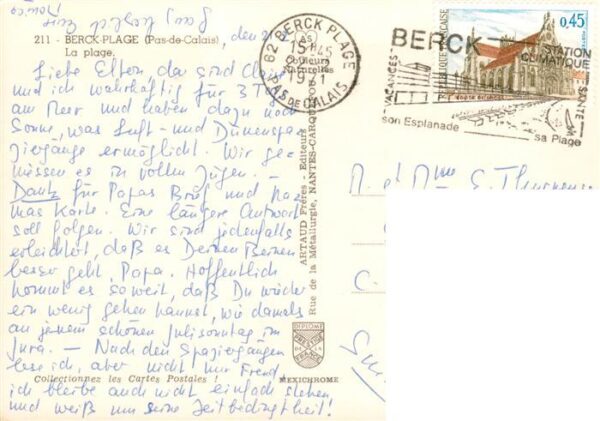 211 - BERCK-PLAGE (Pas-de-Calais)
La plage.
Liebe Eltern, da sind
und ich wahrhaftig für 3
am Meer und haben dazu noch
Sonne, was Luft- und Dünenspa-
ziergänge ermöglicht. Wir ge-
niessen es in vollen Zügen. —
Dank für Papas Brief und
mas Karte. Eine längere Antwort
soll folgen. Wir sind jedenfalls
erleichtert, daß es Deinen Beinen
besser geht, Papa. Hoffentlich
kommt es soweit, daß Du wieder
ein wenig gehen kannst, wie damals
an jenem schönen Julisonntag im
Jura. — Nach den Spaziergängen
lese ich, aber nicht nur Freud,
ich bleibe auch nicht einfach stehen
und weiß um seine Zeitbedingtheit!
Collectionnez les Cartes Postales !
ARTAUD Frères - Editeurs
Rue de la Métallurgie, NANTES-CARQUEFOU
Couleurs
Naturelles
DIPLOME
PRESTIGE
DE LA
FRANCE
MEXICHROME
62 BERCK PLAGE
PAS DE CALAIS
REPUBLIQUE FRANÇAISE
0,45
BERCK
STATION
CLIMATIQUE
VACANCES
SANTE
son Esplanade
sa Plage
M. et Mme